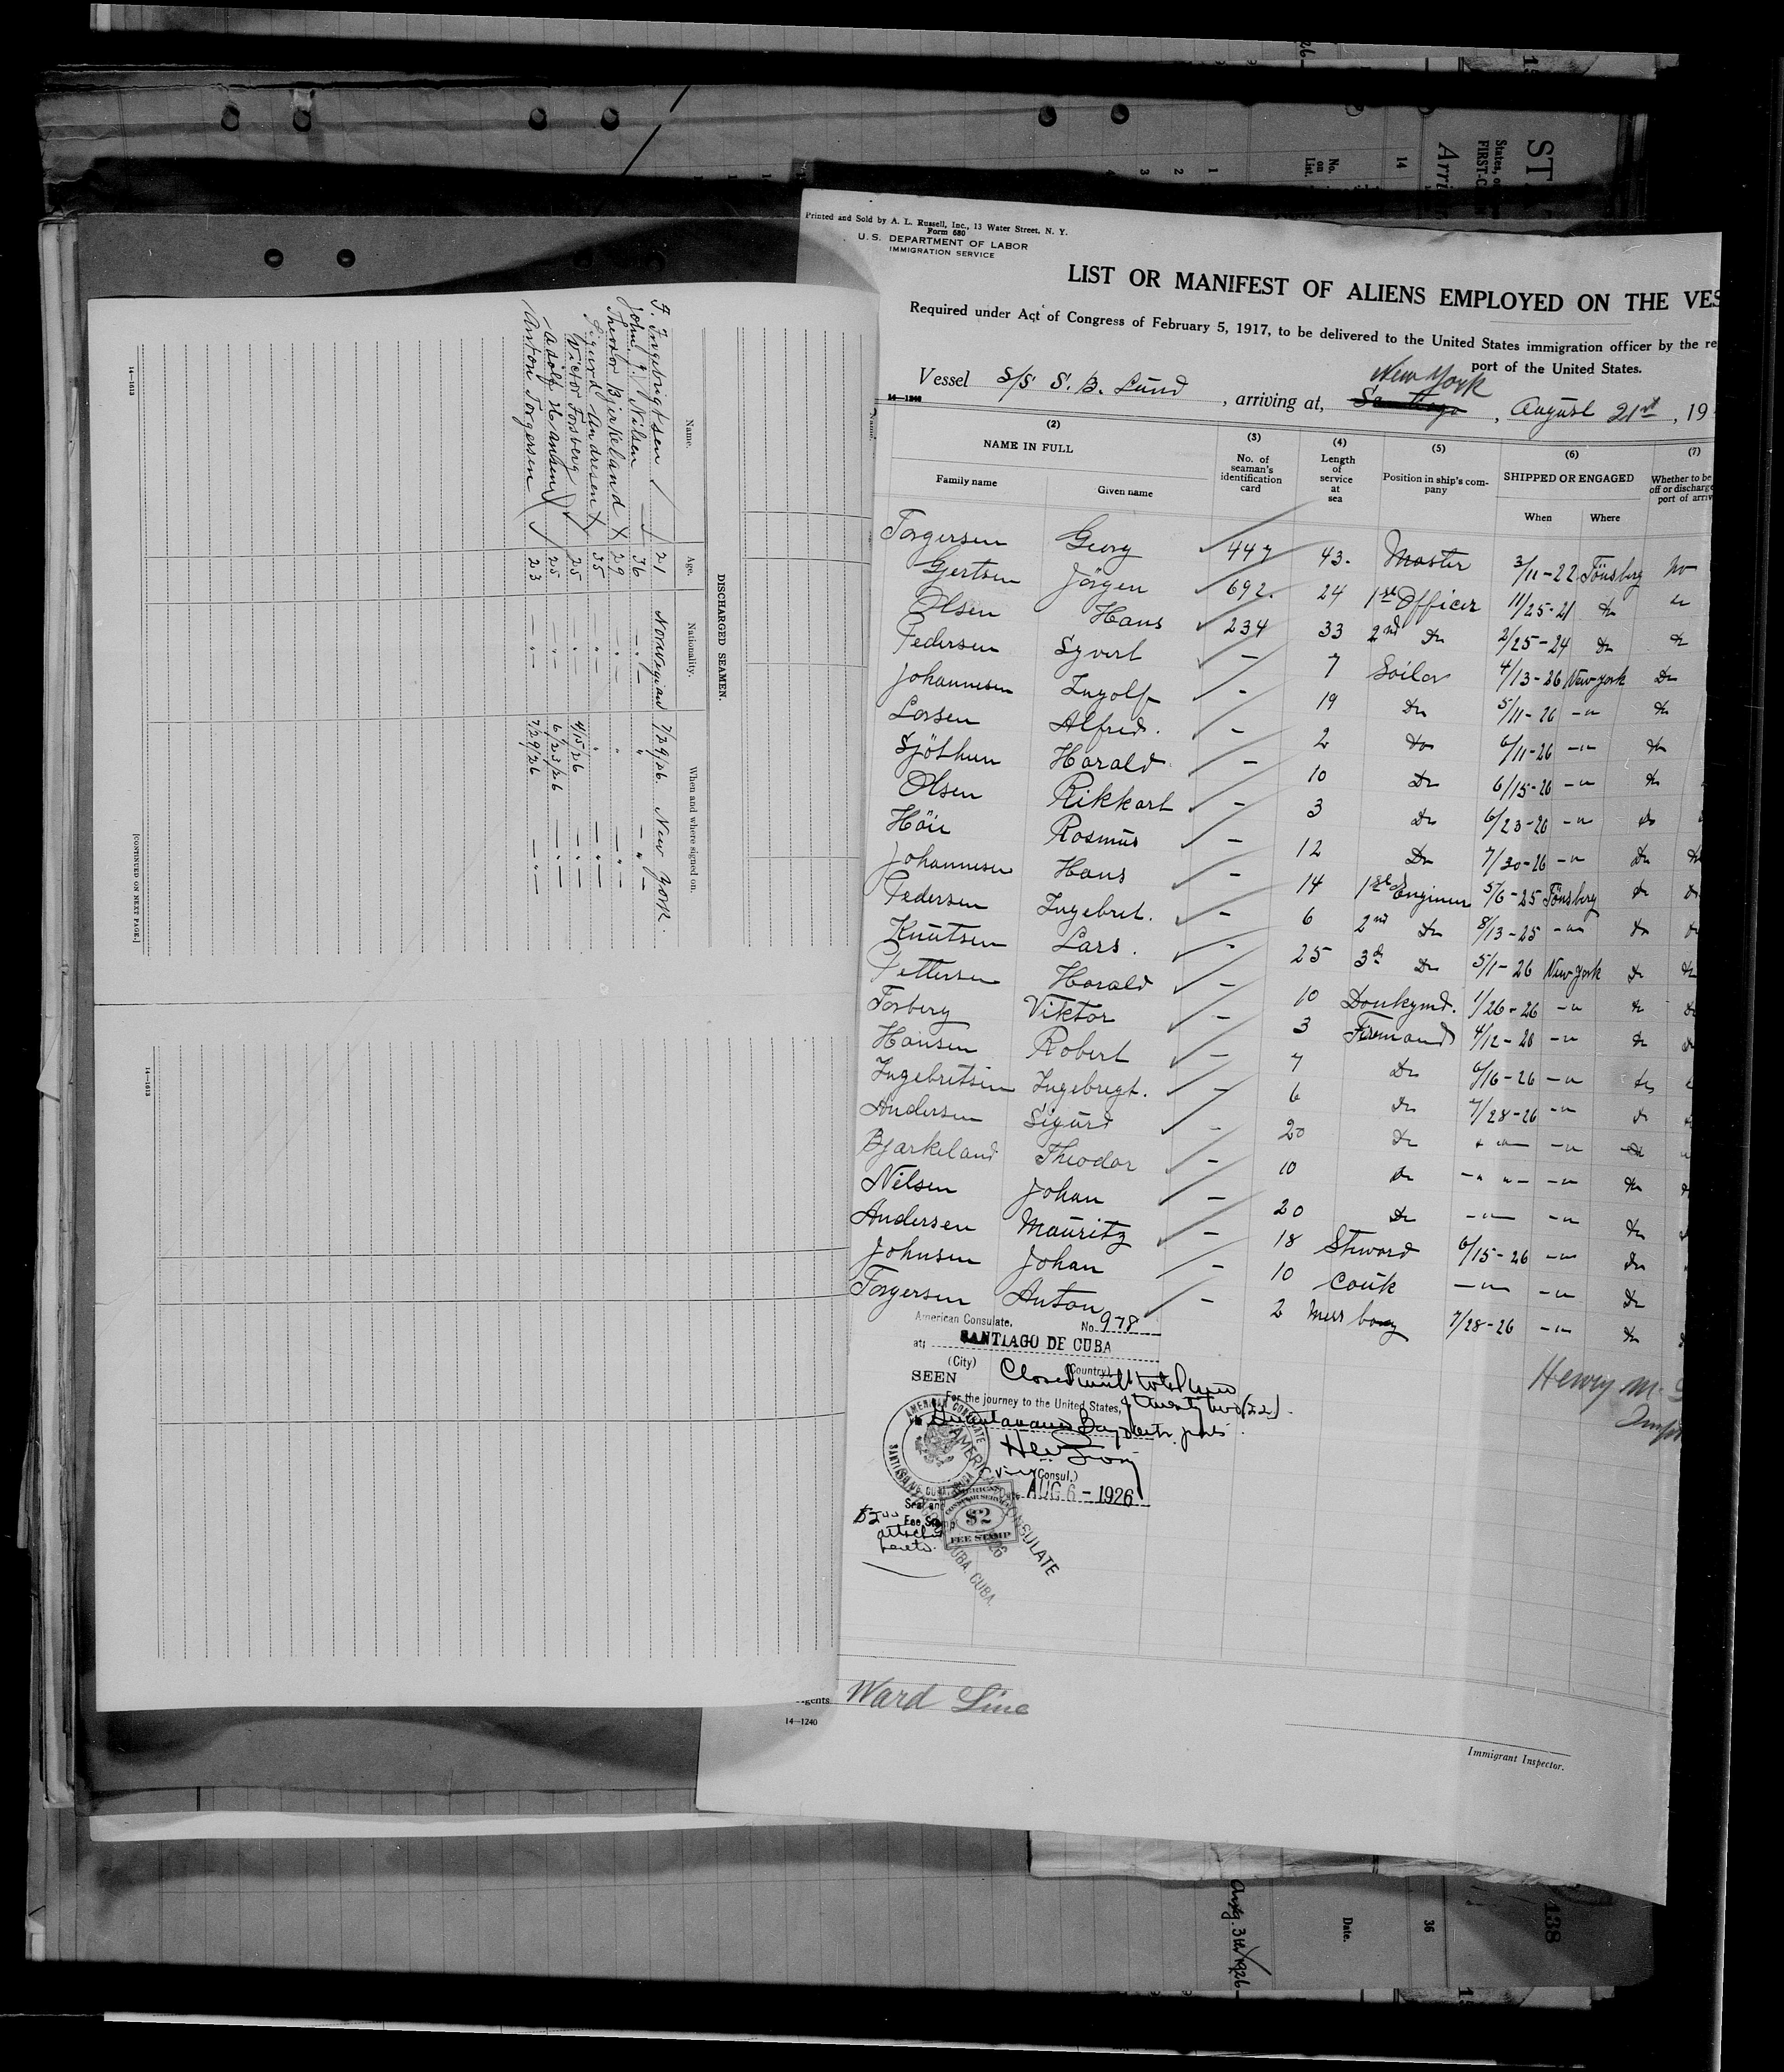 Printed and Sold by A. L. Russell, Inc., 13 Water Street, N. Y.
Form 680
U. S. DEPARTMENT OF LABOR
IMMIGRATION SERVICE
LIST OR MANIFEST OF ALIENS EMPLOYED ON THE VES
Required under Act of Congress of February 5, 1917, to be delivered to the United States immigration officer by the re
port of the United States.
Vessel S/S S. B. Lund, arriving at, New York Santiago, August 21st, 19
14—1240
(2) (3) (4) (5) (6) (7)
NAME IN FULL No. of seaman's identification card Length of service at sea Position in ship's company SHIPPED OR ENGAGED Whether to be
off or discharge
port of arriv
Family name Given name When Where
Torgersen Georg 447 43. Master 3/11-22 Tönsberg No
Gjertsen Jörgen 692. 24 1st Officer 11/25-21 do "
Olsen Hans 234 33 2nd do 2/25-24 do do
Pedersen Syvert - 7 Sailor 4/13-26 New York do
Johannesen Ingolf - 19 do 5/11-26 -"- do
Larsen Alfred. - 2 do 6/11-26 -"- do
Sjöthun Harald - 10 do 6/15-26 -"- do
Olsen Rikkart - 3 do 6/23-26 -"- do
Höie Rasmus - 12 do 7/30-26 -"- do
Johannesen Hans - 14 1st Engineer 5/6-25 Tönsberg do
Pedersen Ingebret. - 6 2nd do 8/13-25 -"- do
Knutsen Lars. - 25 3d do 5/1-26 New York do
Pettersen Harald - 10 Donkeymd. 1/26-26 -"- do
Forberg Viktor - 3 Firemand 4/12-26 -"- do
Hansen Robert - 7 do 6/16-26 -"- do
Ingebretsen Ingebregt. - 6 do 7/28-26 -"- do
Andersen Sigurd - 20 do -"- -"- do
Bjarkeland Theodor - 10 do -"- -"- do
Nilsen Johan - 20 do -"- -"- do
Andersen Mauritz - 18 Steward 6/15-26 -"- do
Johnsen Johan - 10 Couk -"- -"- do
Torgersen Anton - 2 Mess boy 7/28-26 -"- do
Henry M.
American Consulate, No. 978
at: SANTIAGO DE CUBA
(City) (Country)
SEEN
For the journey to the United States, twenty two (22)
(Consul.)
AUG 6 - 1926
AMERICAN CONSULATE
Seal and
Fee Stamp
$2
FEE STAMP
attached
AMERICAN CONSULATE
CUBA CUBA
Ward Line
14—1240
Immigrant Inspector.
DISCHARGED SEAMEN.
Name. Age. Nationality. When and where signed on.
F. Ingebrigtsen 21 Norwegian 7/29/26. New York.
John J. Nilsen 36 -"- " -"-
Theodor Bjerkeland X 29 -"- " -"-
Sigurd Andresen X 35 -"- " -"-
Victor Forsberg 25 -"- 4/15/26 -"-
Adolf Hansen 25 -"- 6/23/26 -"-
Anton Torgersen 23 -"- 7/29/26 -"-
[CONTINUED ON NEXT PAGE.]
14—1613
14—1613
No.
on
List.
14
States, o
FIRST-C
ST
Arri
Aug. 31st/1926
Date.
36
138